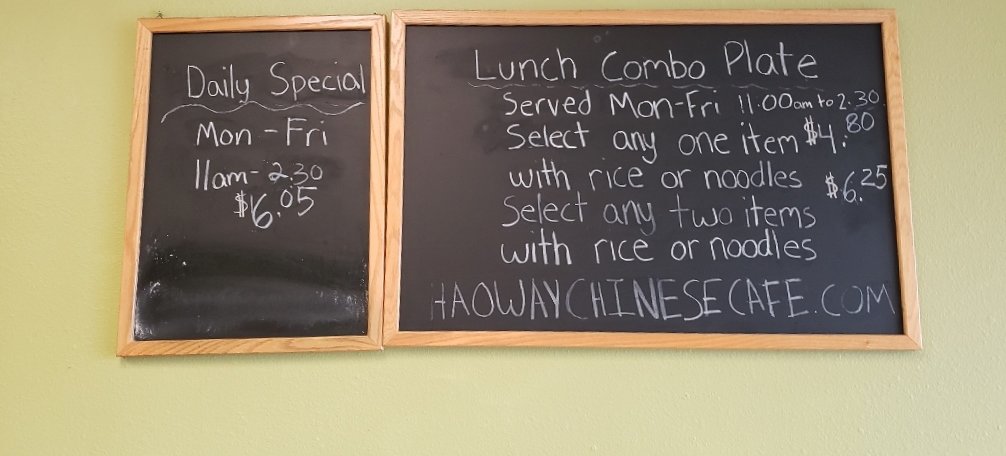 Daily Special
Mon - Fri
11am - 2.30
$6.05
Lunch Combo Plate
Served Mon-Fri 11.00am to 2.30
Select any one item $4.80
with rice or noodles $6.25
Select any two items
with rice or noodles
HAOWAYCHINESECAFE.COM